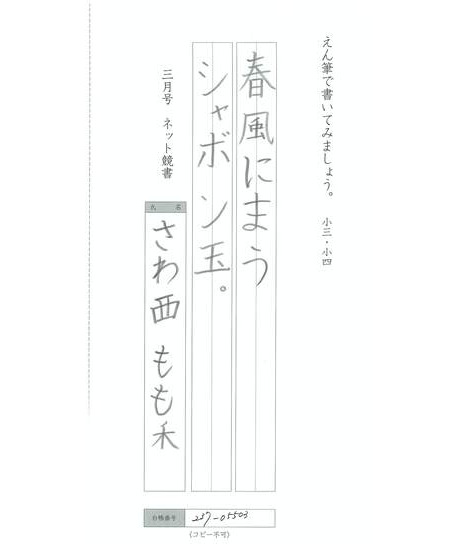 えん筆で書いてみましょう。 小三・小四
春風にまう
シャボン玉。
三月号 ネット競書
氏名
さわ西 もも禾
台帳番号 237-05503
(コピー不可)